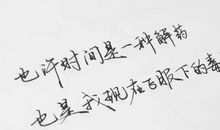 也许时间是一种解药
也是我现在正服下的毒